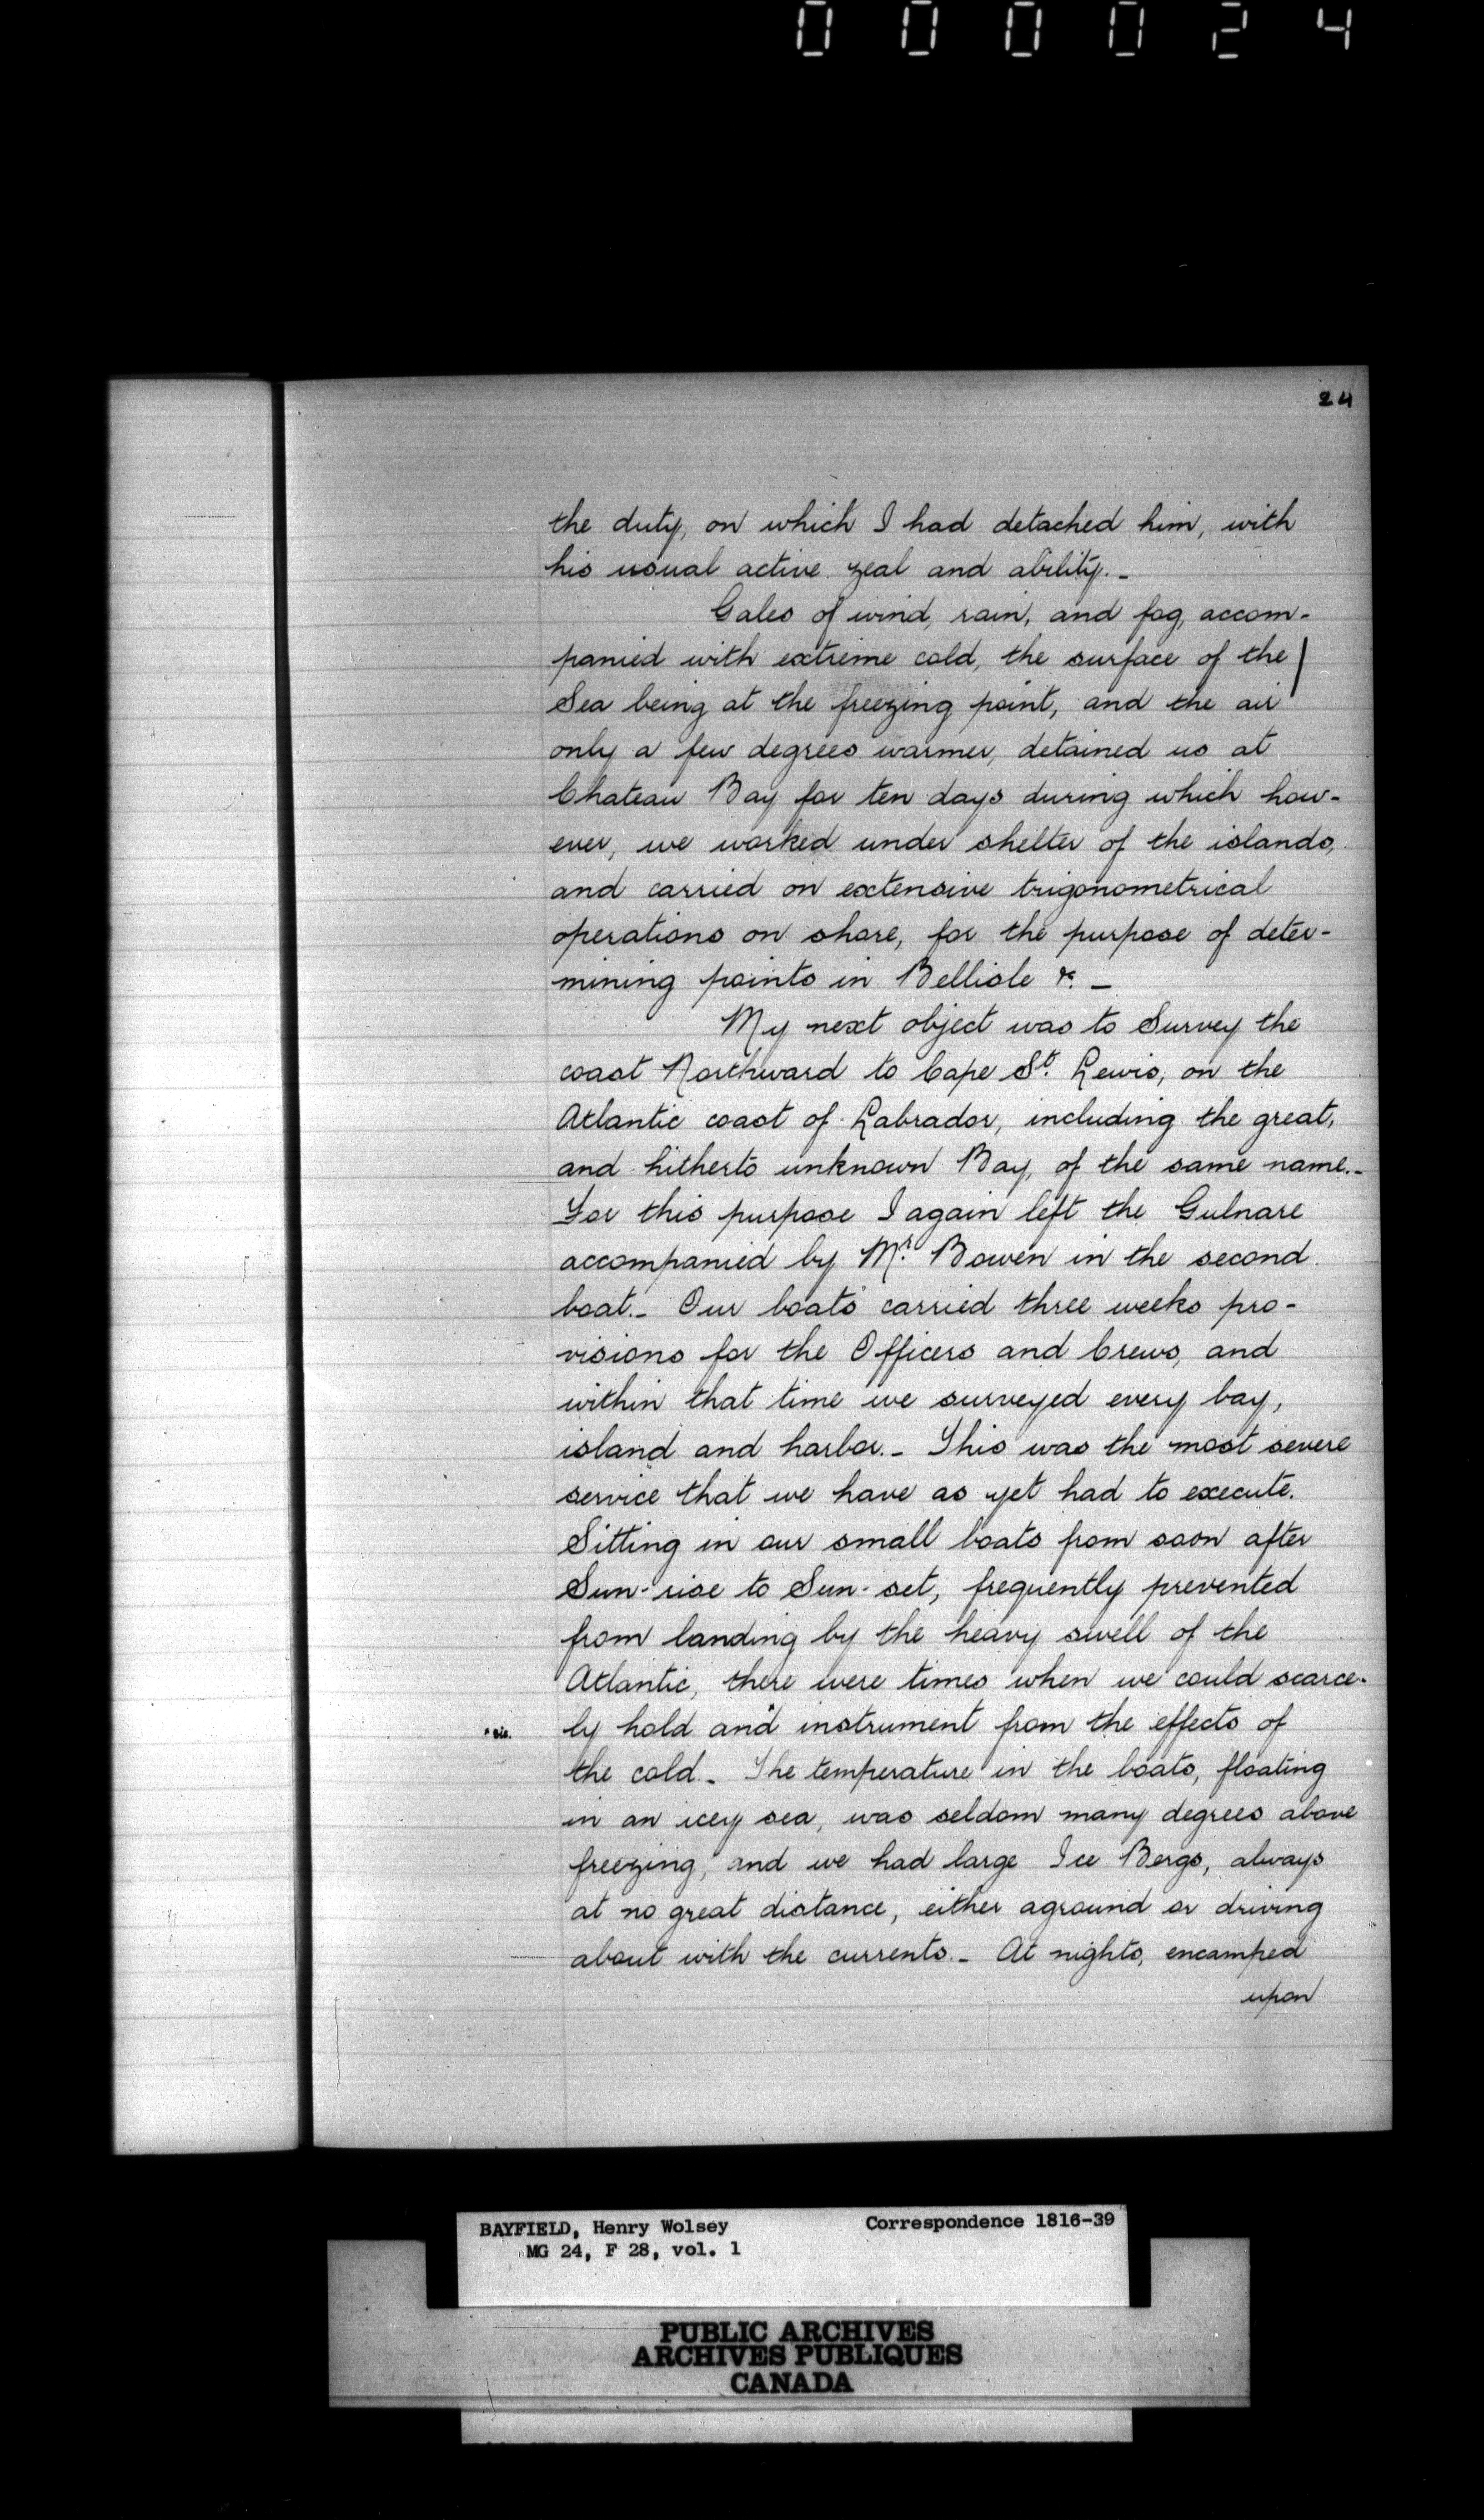 000024
24
the duty, on which I had detached him, with
his usual active zeal and ability._
Gales of wind, rain, and fog, accom-
panied with extreme cold, the surface of the
Sea being at the freezing point, and the air
only a few degrees warmer, detained us at
Chateau Bay for ten days during which how-
ever, we worked under shelter of the islands,
and carried on extensive trigonometrical
operations on shore, for the purpose of deter-
mining points in Bellisle &c. _
My next object was to Survey the
coast Northward to Cape St. Lewis, on the
Atlantic coast of Labrador, including the great,
and hitherto unknown Bay, of the same name._
For this purpose I again left the Gulnare
accompanied by Mr. Bowen in the second
boat._ Our boats carried three weeks pro-
visions for the Officers and Crews, and
within that time we surveyed every bay,
island and harbor._ This was the most severe
service that we have as yet had to execute.
Sitting in our small boats from soon after
Sun-rise to Sun-set, frequently prevented
from landing by the heavy swell of the
Atlantic, there were times when we could scarce-
* sic. ly hold and* instrument from the effects of
the cold._ The temperature in the boats, floating
in an icey sea, was seldom many degrees above
freezing, and we had large Ice Bergs, always
at no great distance, either aground or driving
about with the currents._ At nights, encamped
upon
BAYFIELD, Henry Wolsey Correspondence 1816-39
MG 24, F 28, vol. 1
PUBLIC ARCHIVES
ARCHIVES PUBLIQUES
CANADA